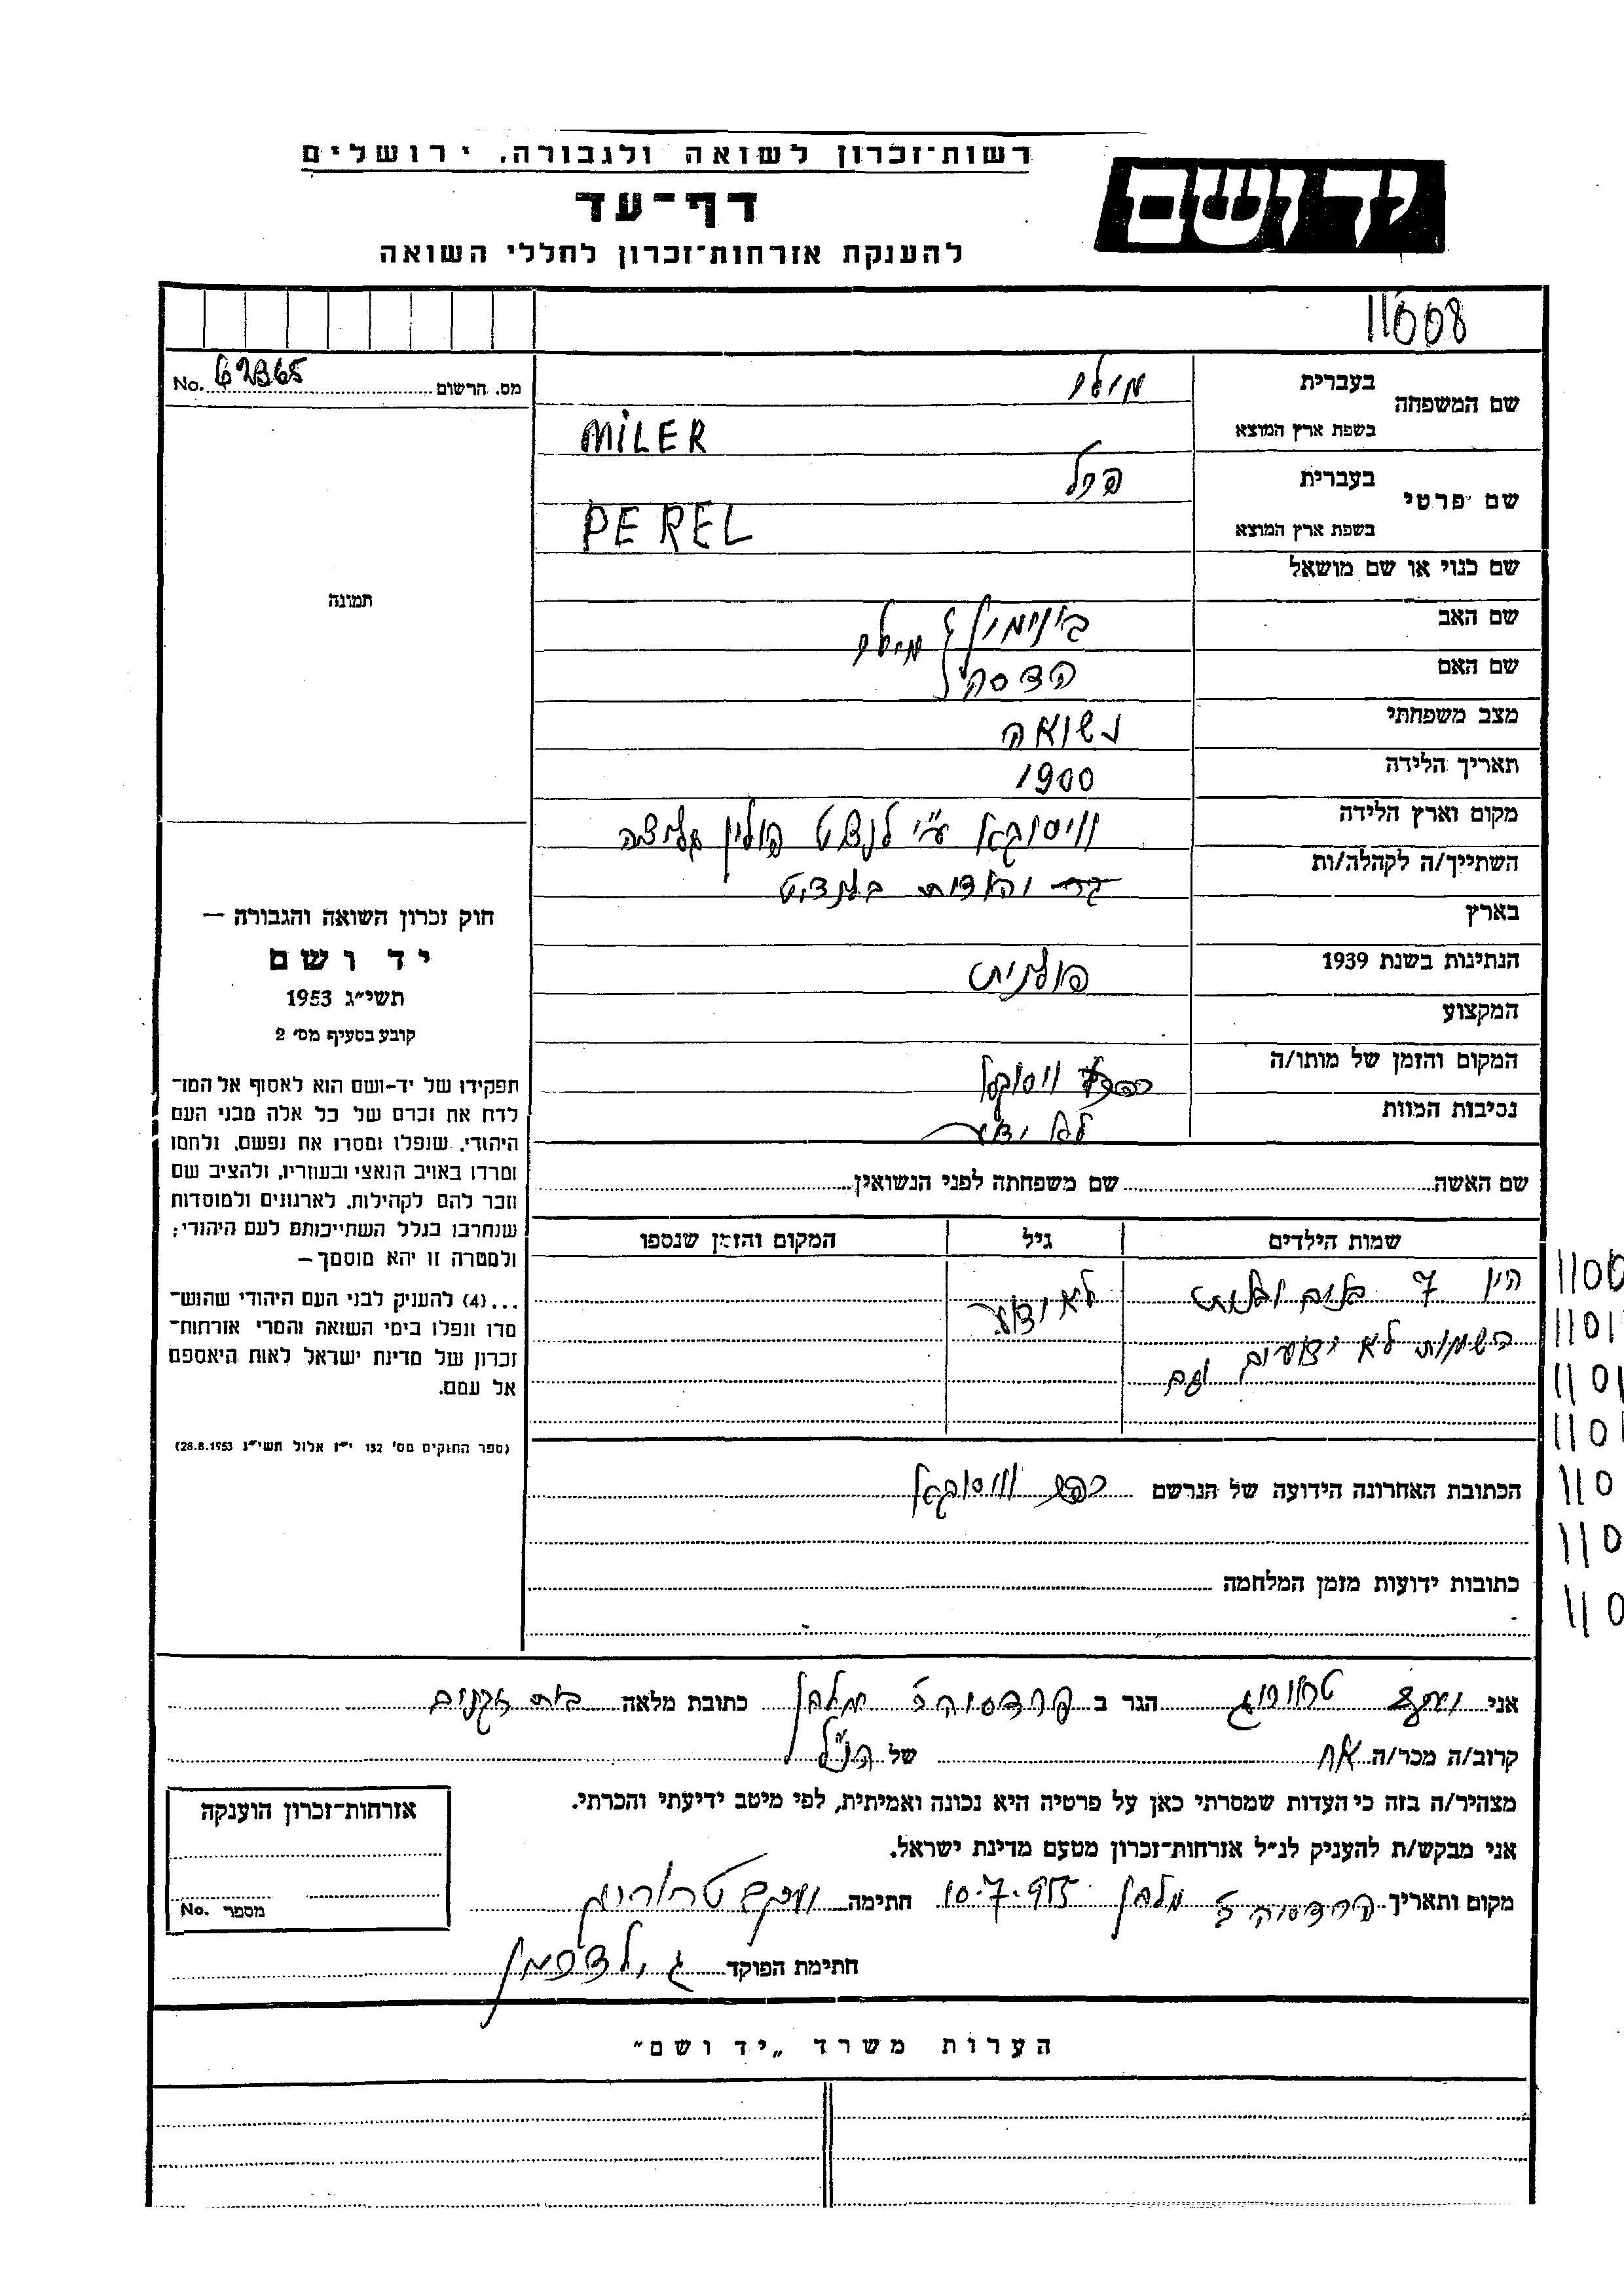 רשות־זכרון לשואה ולגבורה, ירושלים
יד ושם
דף־עד
להענקת אזרחות־זכרון לחללי השואה
11008
מס. הרשום 62365 No.
שם המשפחה
בעברית מילר
בשפת ארץ המוצא MILER
שם פרטי
בעברית פרל
בשפת ארץ המוצא PEREL
שם כנוי או שם מושאל
שם האב בינימין מילר
שם האם הדסה
מצב משפחתי נשואה
תאריך הלידה 1900
מקום וארץ הלידה וויסוקא ע"י לנצוט פולין גליציה
השתייך/ה לקהלה/ות
בארץ
הנתינות בשנת 1939 פולנית
המקצוע
המקום והזמן של מותו/ה
נסיבות המוות לא ידוע
שם האשה שם משפחתה לפני הנשואין
שמות הילדים גיל המקום והזמן שנספו
היו 7 בנים ובנות לא ידוע
השמות לא ידועים וגם
הכתובת האחרונה הידועה של הנרשם כפר וויסוקא
כתובות ידועות מזמן המלחמה
תמונה
חוק זכרון השואה והגבורה —
יד ושם
תשי״ג 1953
קובע בסעיף מס׳ 2
תפקידו של יד־ושם הוא לאסוף אל המו־
לדת את זכרם של כל אלה מבני העם
היהודי, שנפלו ומסרו את נפשם, נלחמו
ומרדו באויב הנאצי ובעוזריו, ולהציב שם
וזכר להם לקהילות, לארגונים ולמוסדות
שנחרבו בגלל השתייכותם לעם היהודי;
ולמטרה זו יהא מוסמך —
...(4) להעניק לבני העם היהודי שהוש־
מדו ונפלו בימי השואה והמרי אזרחות־
זכרון של מדינת ישראל לאות היאספם
אל עמם.
(ספר החוקים מס׳ 132 י״ז אלול תשי״ג 28.8.1953)
אני הגר ב פרדס חנה מלבן כתובת מלאה בית זקנים
קרוב/ה מכר/ה אח של הנ"ל
מצהיר/ה בזה כי העדות שמסרתי כאן על פרטיה היא נכונה ואמיתית, לפי מיטב ידיעתי והכרתי.
אני מבקש/ת להעניק לנ״ל אזרחות־זכרון מטעם מדינת ישראל.
מקום ותאריך מלבן 10.7.955 חתימה
חתימת הפוקד גילדפמן
אזרחות־זכרון הוענקה
מספר No.
הערות משרד „יד ושם״